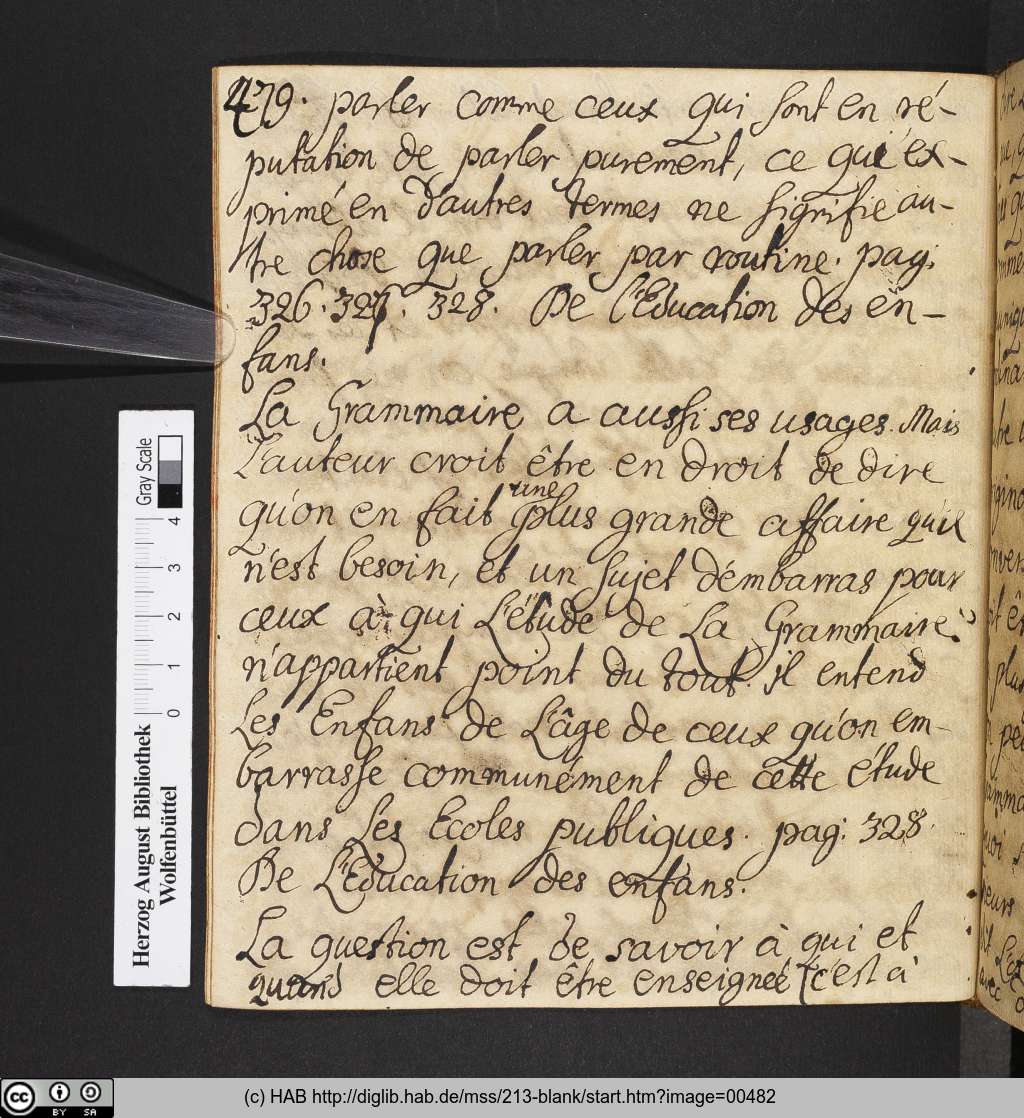 479. parler comme ceux qui sont en ré-
putation de parler purement, ce qui ex-
primé en d'autres termes ne signifie au-
tre chose que parler par routine. pag.
326. 327. 328. De l'Education des en-
fans.
La Grammaire a aussi ses usages. Mais
L'auteur croit être en droit de dire
qu'on en fait une plus grande affaire qu'il
n'est besoin, et un sujet d'émbarras pour
ceux à qui L'étude de La Grammaire
n'appartient point du tout. il entend
Les Enfans de L'âge de ceux qu'on em-
barrasse communément de cette étude
dans Les Ecoles publiques. pag: 328.
De L'Education des enfans.
La question est de savoir à qui et
quand elle doit étre enseigneé (c'est à
Gray Scale
0 1 2 3 4
Herzog August Bibliothek
Wolfenbüttel
cc BY SA
(c) HAB http://diglib.hab.de/mss/213-blank/start.htm?image=00482